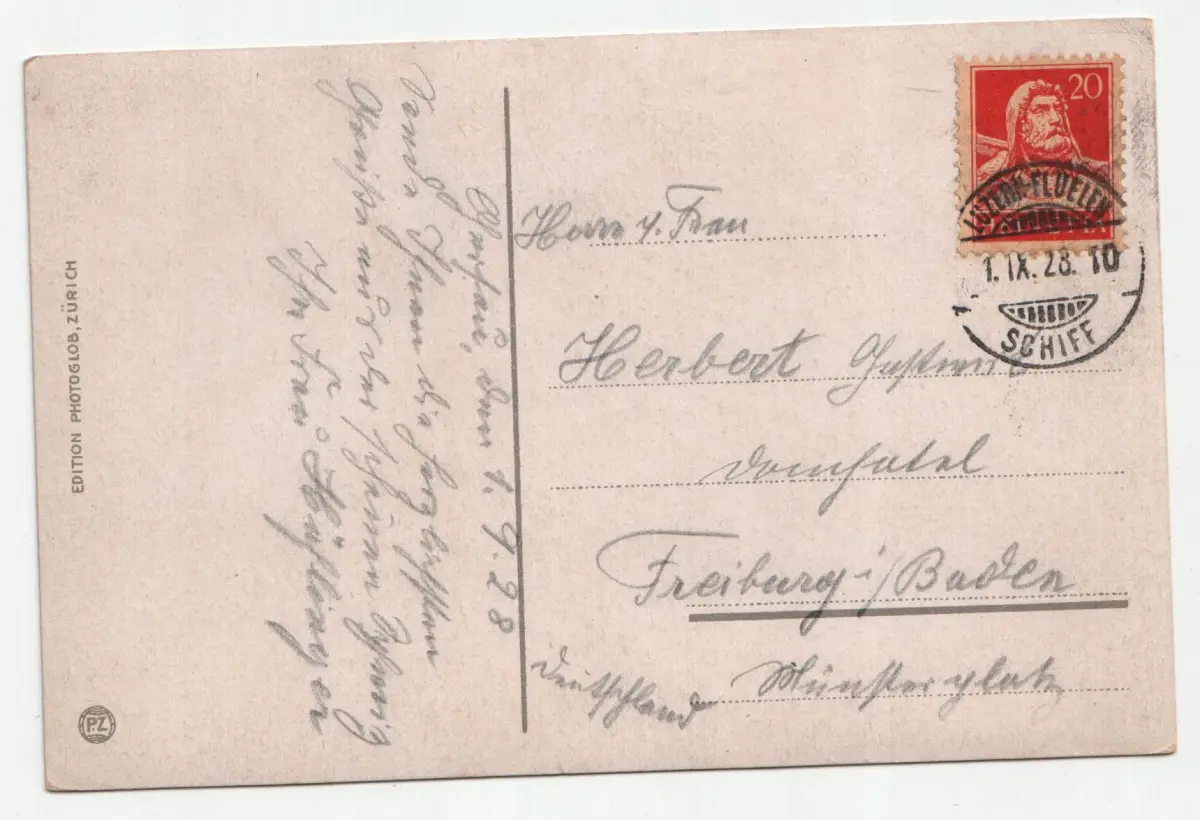 EDITION PHOTOGLOB, ZÜRICH
P.Z
den 1.9.28
Sende Ihnen die herzlichsten
Grüße aus der schönen Schweiz
Ihre Frau
20
LUZERN-FLUELEN
1.IX.28.10
SCHIFF
Herrn u. Frau
Herbert
Domhotel
Freiburg i/Baden
Münsterplatz
Deutschland